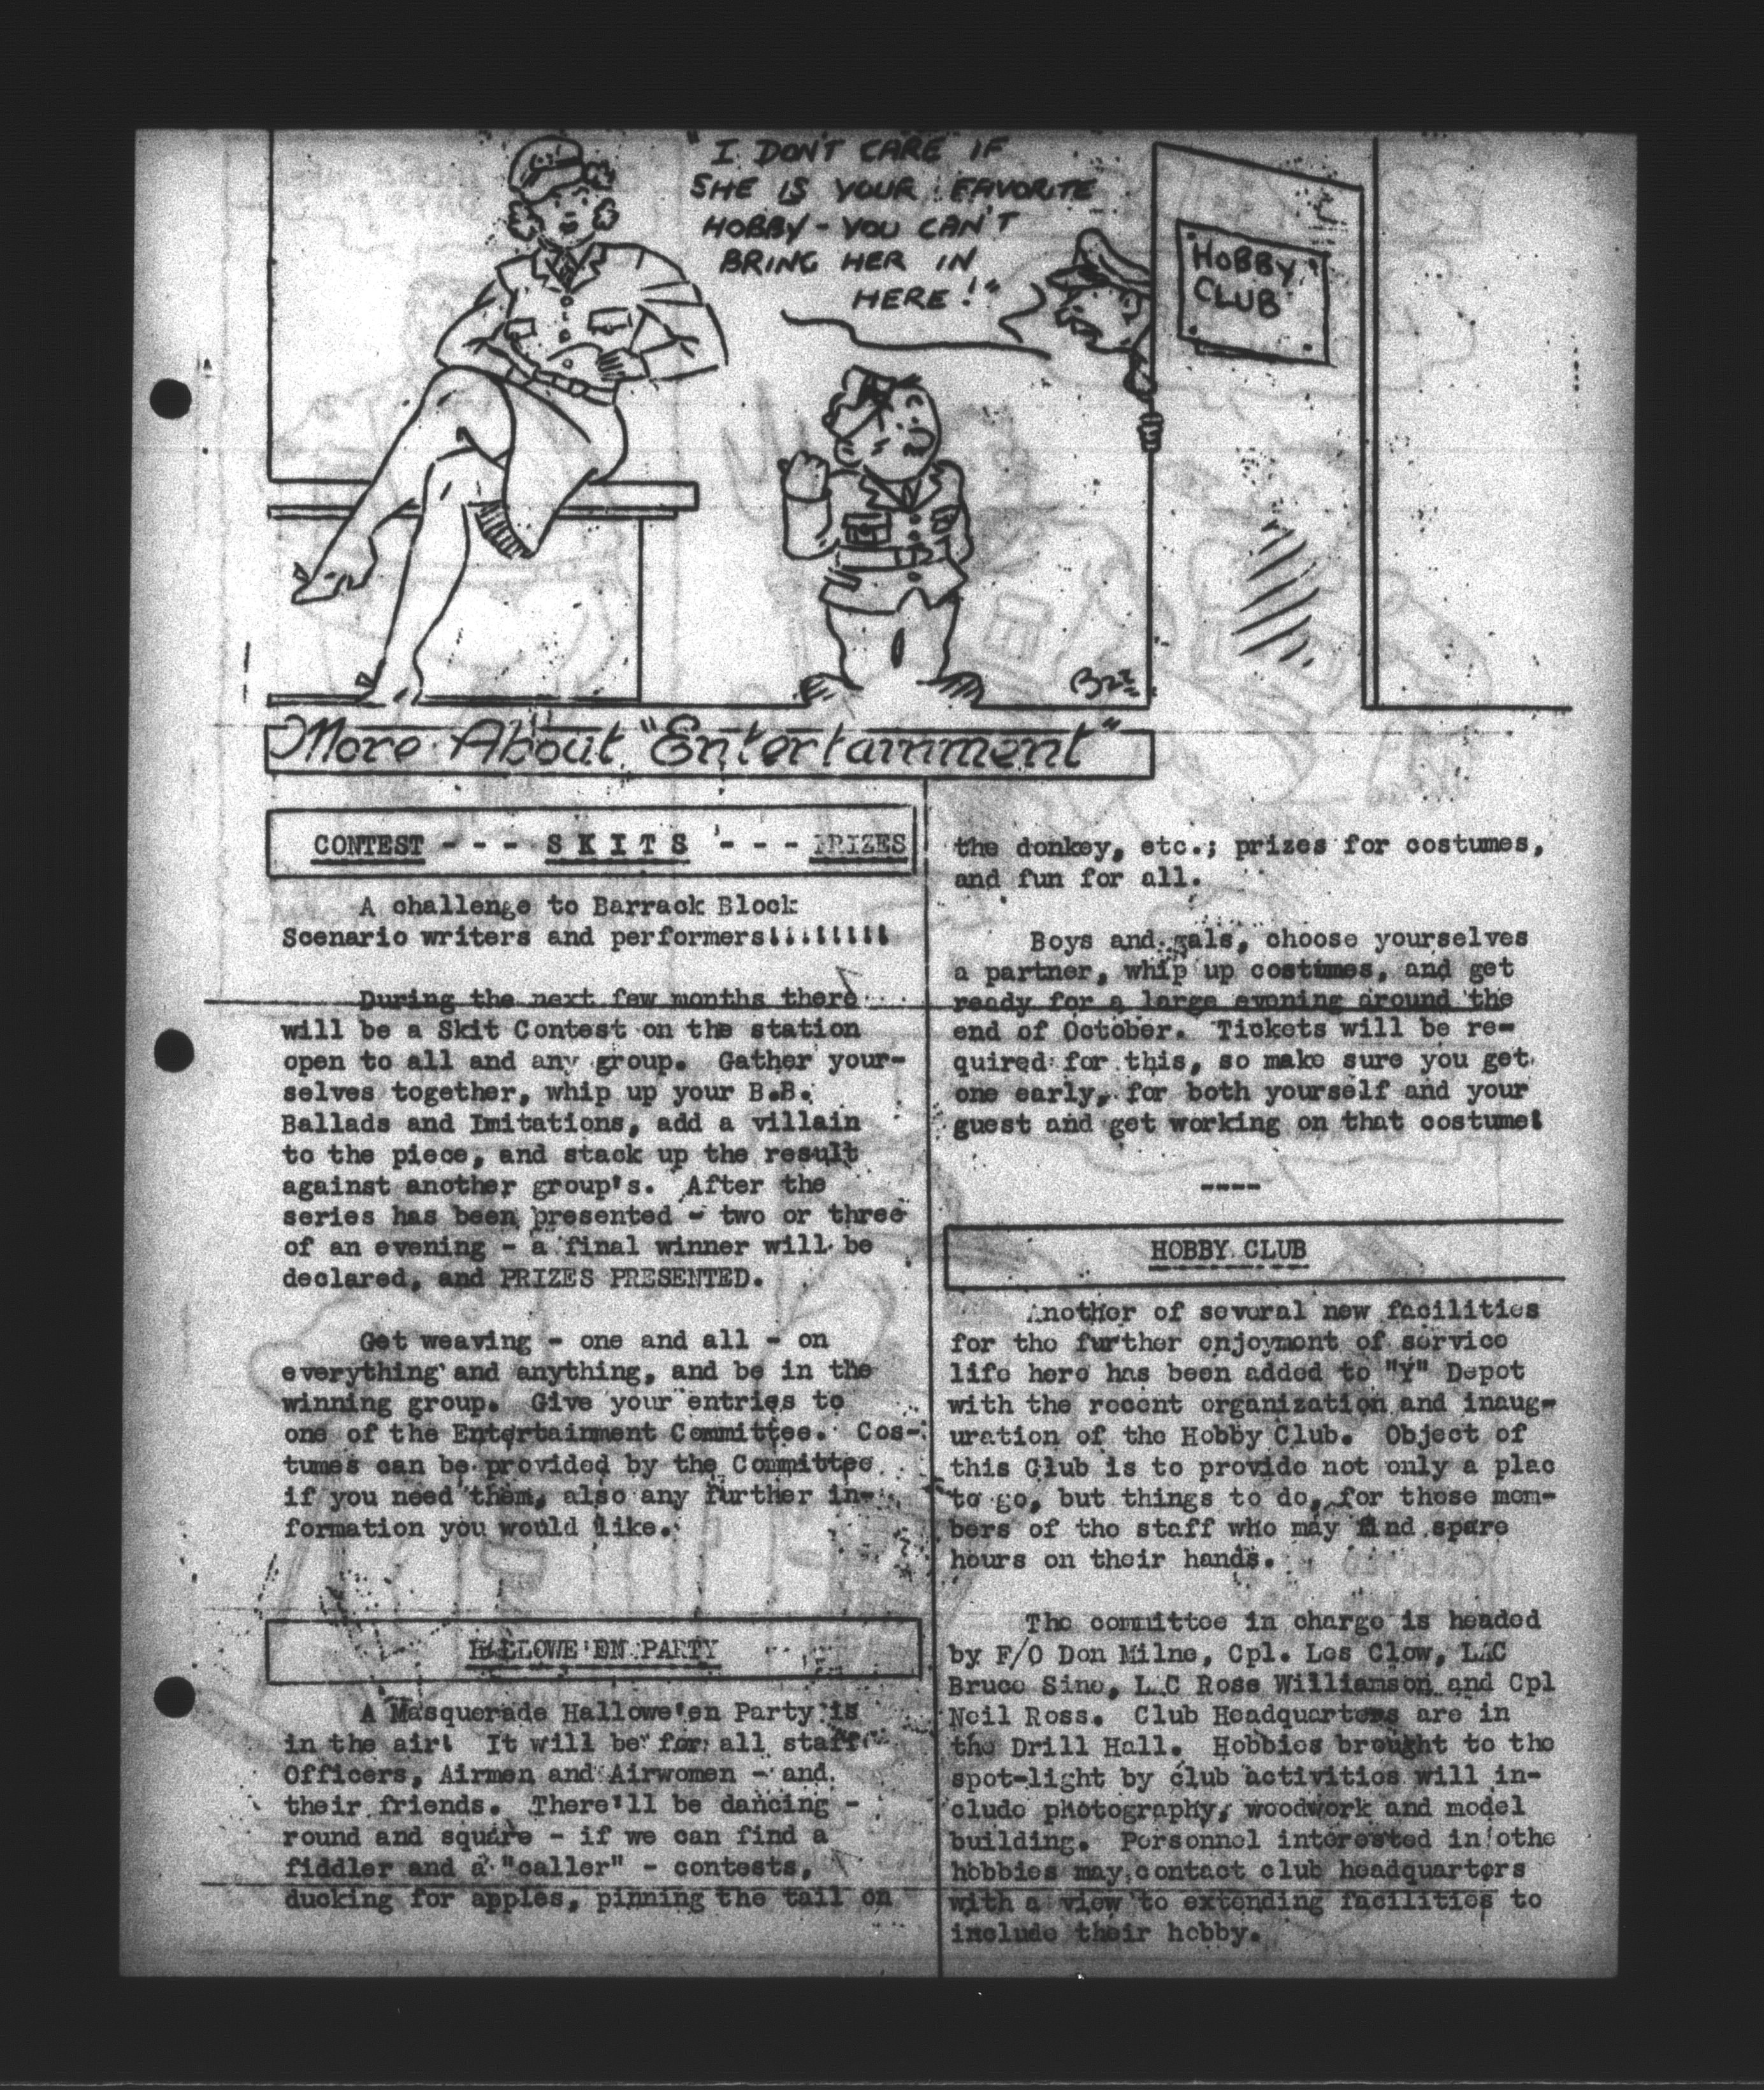 "I DON'T CARE IF
SHE IS YOUR FAVORITE
HOBBY - YOU CAN'T
BRING HER IN
HERE!"
HOBBY
CLUB
More About "Entertainment"
CONTEST - - - S K I T S - - - PRIZES
A challenge to Barrack Block
Scenario writers and performers!!!!!!!!
During the next few months there
will be a Skit Contest on the station
open to all and any group. Gather your-
selves together, whip up your B.B.
Ballads and Imitations, add a villain
to the piece, and stack up the result
against another group's. After the
series has been presented - two or three
of an evening - a final winner will be
declared, and PRIZES PRESENTED.
Get weaving - one and all - on
everything and anything, and be in the
winning group. Give your entries to
one of the Entertainment Committee. Cos-
tumes can be provided by the Committee
if you need them, also any further in-
formation you would like.
HALLOWE'EN PARTY
A Masquerade Hallowe'en Party is
in the air! It will be for all staff
Officers, Airmen and Airwomen - and
their friends. There'll be dancing -
round and square - if we can find a
fiddler and a "caller" - contests,
ducking for apples, pinning the tail on
the donkey, etc.; prizes for costumes,
and fun for all.
Boys and gals, choose yourselves
a partner, whip up costumes, and get
ready for a large evening around the
end of October. Tickets will be re-
quired for this, so make sure you get
one early, for both yourself and your
guest and get working on that costume!
----
HOBBY CLUB
Another of several new facilities
for the further enjoyment of service
life here has been added to "Y" Depot
with the recent organization and inaug-
uration of the Hobby Club. Object of
this Club is to provide not only a plac
to go, but things to do, for those mem-
bers of the staff who may find spare
hours on their hands.
The committee in charge is headed
by F/O Don Milne, Cpl. Les Clow, LAC
Bruce Sine, LAC Ross Williamson and Cpl
Neil Ross. Club Headquarters are in
the Drill Hall. Hobbies brought to the
spot-light by club activities will in-
clude photography, woodwork and model
building. Personnel interested in othe
hobbies may contact club headquarters
with a view to extending facilities to
include their hobby.